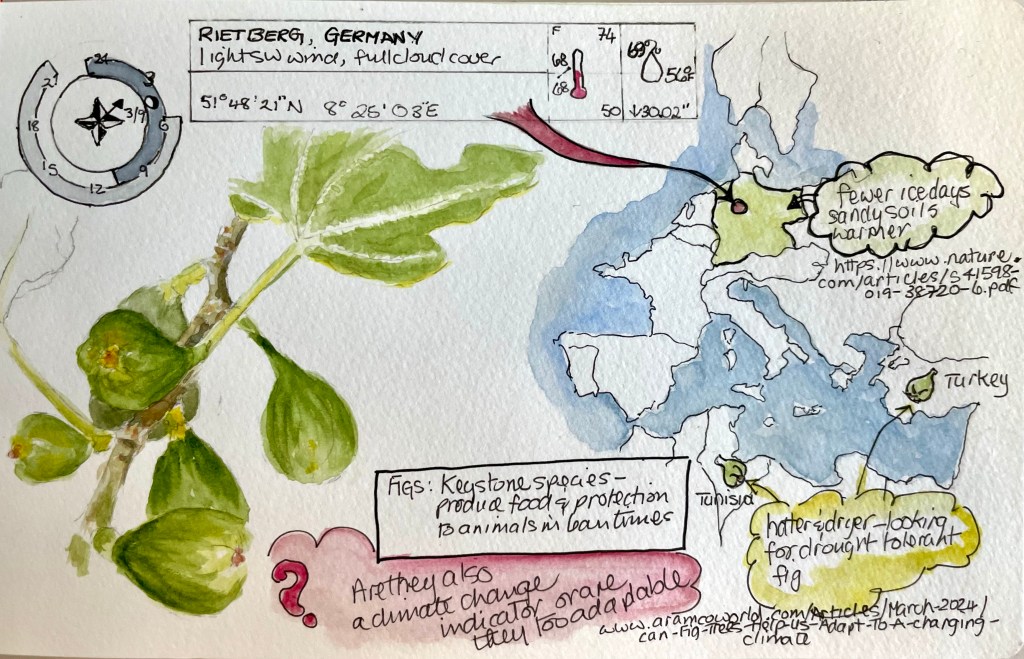 RIETBERG, GERMANY
light SW wind, full cloud cover
51° 48' 21" N 8° 25' 03" E
F 74
68
68
50
69%
56°F
↓30.02"
24
3
3/9
6
9
12
15
18
21
fewer ice days
sandy soils
warmer
https://www.nature.
com/articles/s41598-
019-38720-6.pdf
Turkey
Tunisia
Figs: Keystone species -
produce food & protection
to animals in lean times
hotter & dryer - looking
for drought tolerant
fig
?
Are they also
a climate change
indicator or are
they too adaptable
www.aramcoworld.com/Articles/March-2024/
can-Fig-Trees-Help-us-Adapt-To-A-changing-
climate